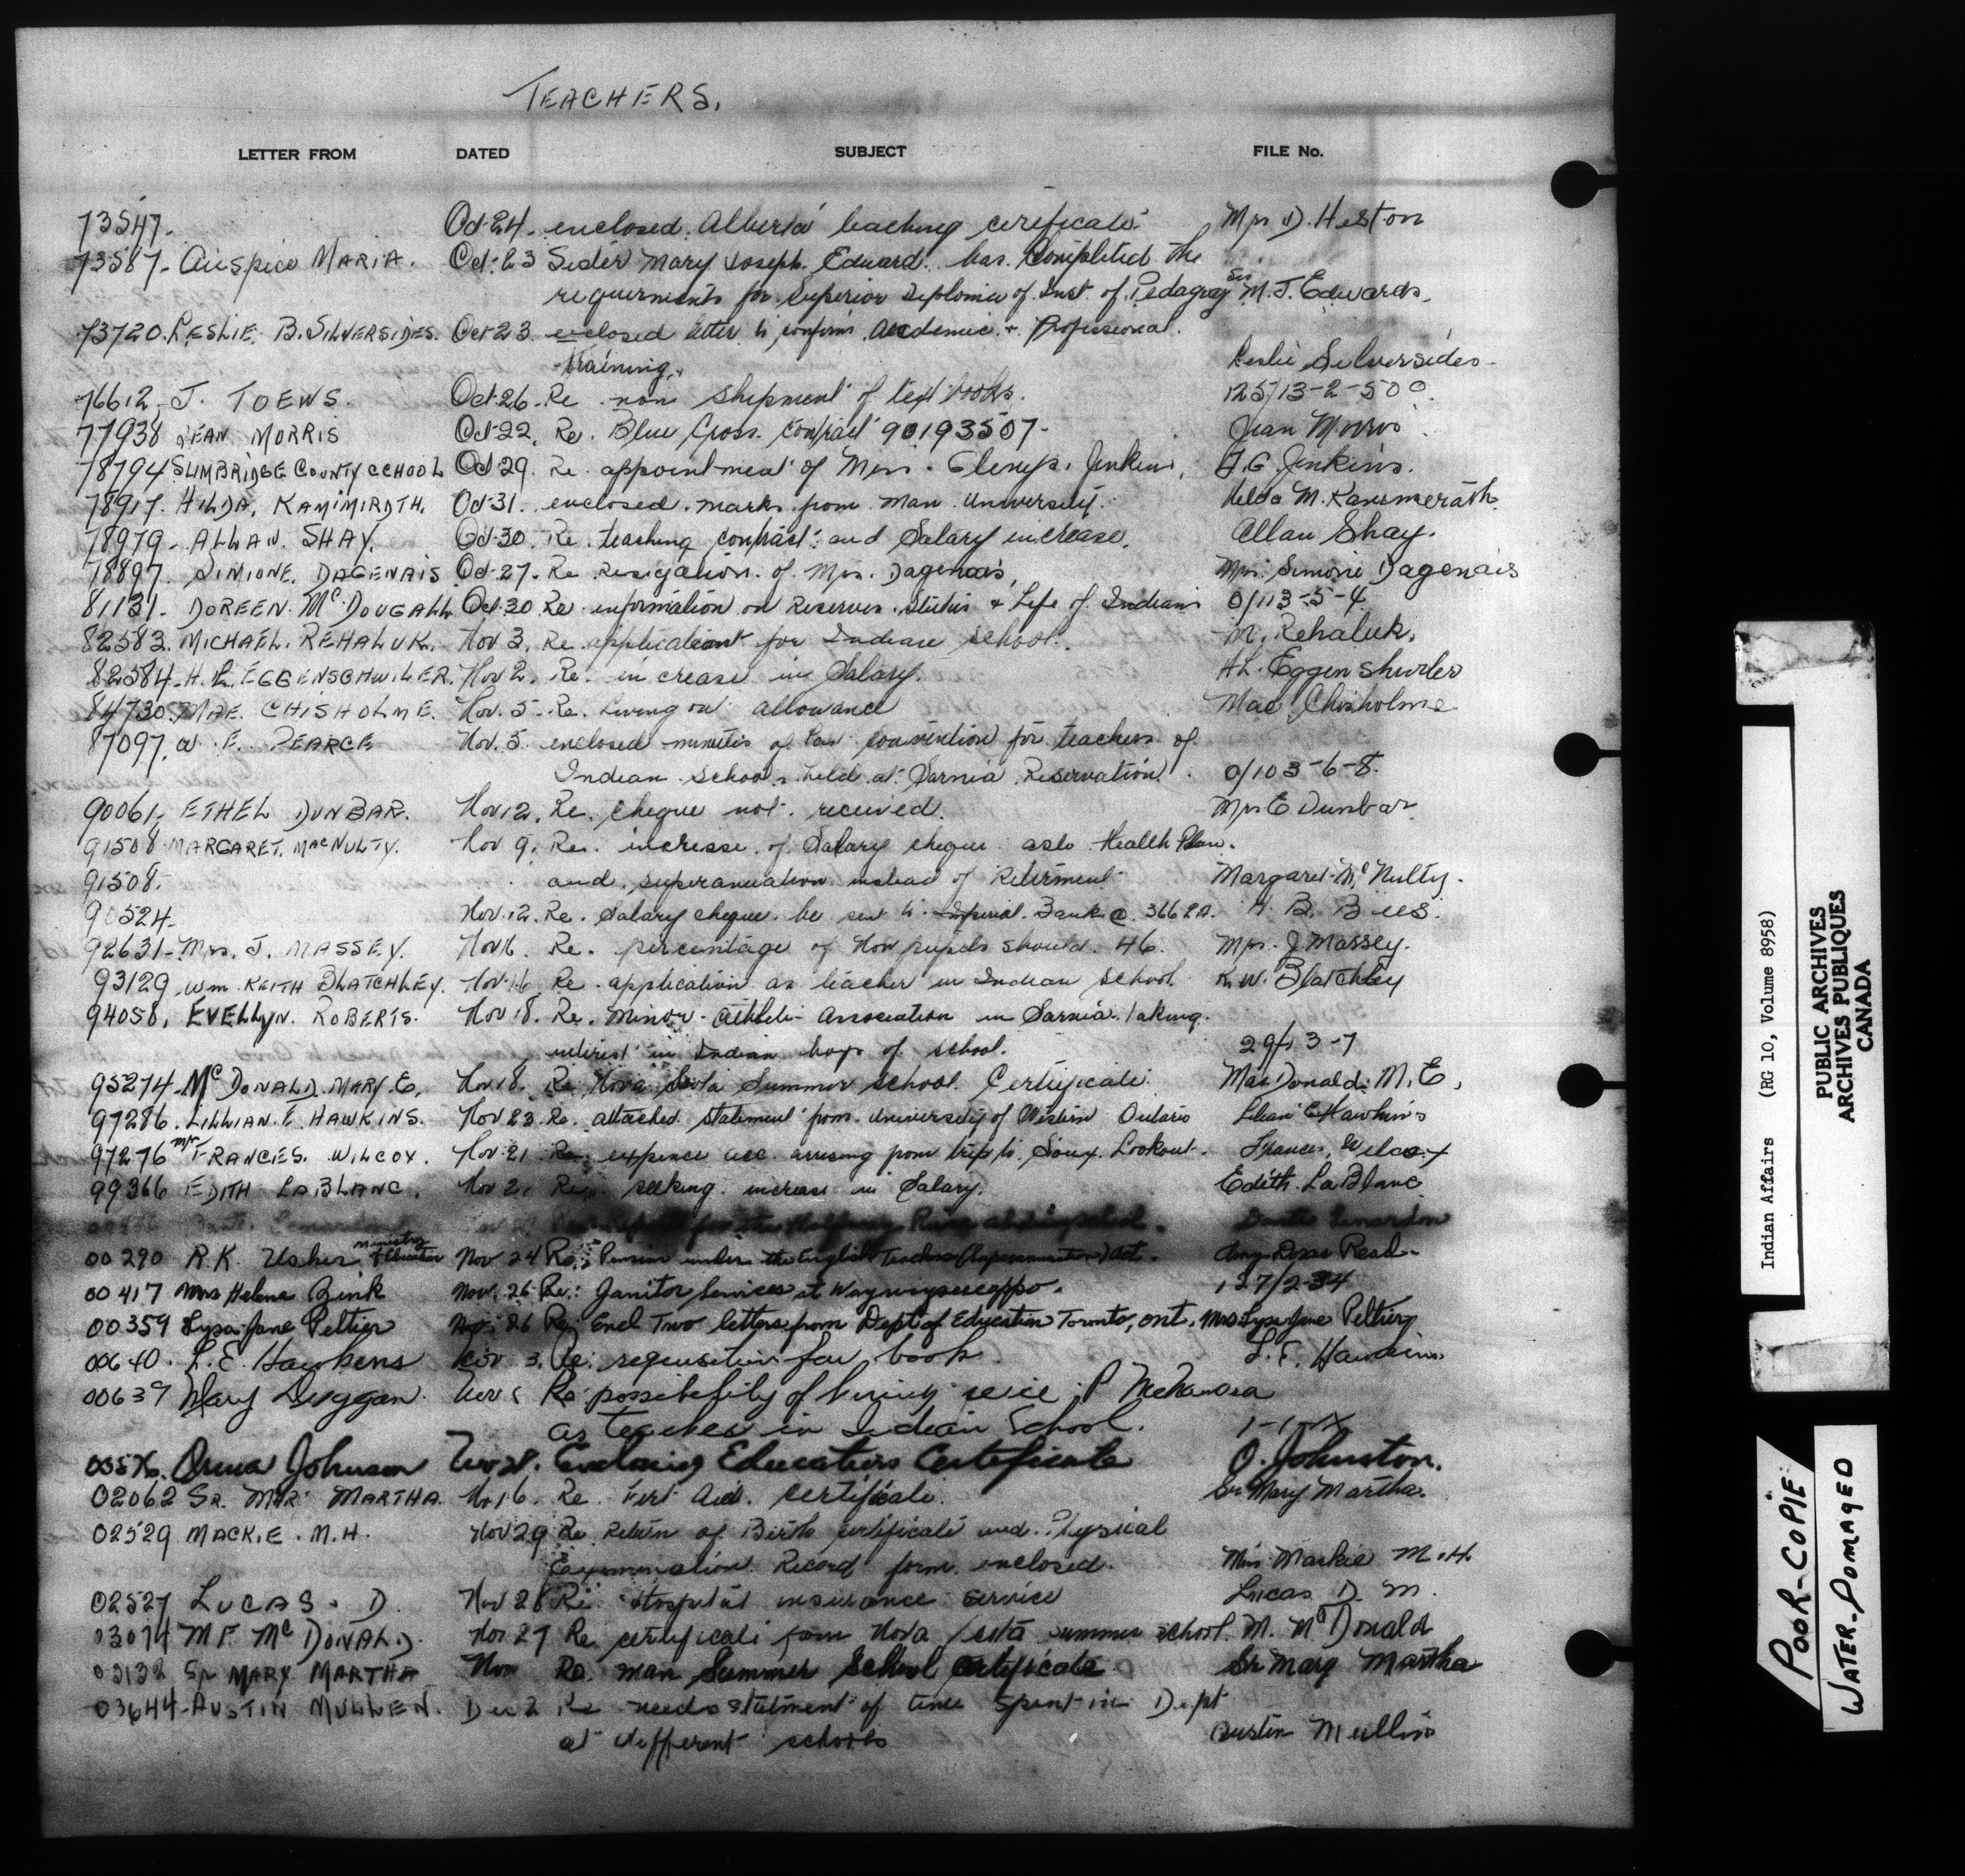 TEACHERS.
LETTER FROM DATED SUBJECT FILE No.
73547. Oct 24. enclosed Alberta teaching cerificate. Mrs D. Heston
73587. Auspice MARIA. Oct. 23 Sister Mary Joseph. Edward. has completed the
requirments for Superior Diploma of Inst. of Pedagogy Sis M.J. Edwards.
73720. LESLIE. B. SILVERSIDES. Oct 23. enclosed letter to confirm Academic + Professional.
training. Leslie Silversides
76612. J. TOEWS. Oct. 26. Re non shipment of text books. 125/13-2-500.
77938 JEAN MORRIS Oct 22. Re. Blue Cross. Contract 90193507- Jean Morris
78794 SLIMBRIDGE COUNTY SCHOOL Oct 29. Re. appointment of Miss. Glenys. Jenkins. A.G. Jenkins.
78917. HILDA. KAMIMIRDTH. Oct 31. enclosed. marks from Man. University. Helda M. Kammerath.
78979. ALLAN. SHAY. Oct 30. Re. teaching contract: and Salary increase. Allan Shay.
78897. SIMONE. DAGENAIS Oct. 27. Re Resigation. of Mrs. Dagenais, Mrs. Simone Dagenais
81131. DOREEN Mc DOUGALL Oct 30 Re. information on Reserves. Status + Life of Indians 0/113-5-4
82583. MICHAEL. REHALUK. Nov 3. Re application for Indian School. M. Rehaluk.
82584. H. L. EGGENSCHWILER. Nov 2. Re. increase in Salary. H.L. Eggenshwiler
84730. MAE. CHISHOLME. Nov. 5. Re. Living out allowance Mae Chisholme
87097. W. E. PEARCE Nov. 5 enclosed minutes of convention for teachers of
Indian schools held at Sarnia Reservation. 0/103-6-8.
90061. ETHEL DUNBAR. Nov 12. Re. cheque not. received. Mrs E Dunbar
91508 MARGARET. MACNULTY. Nov 9. Re. increase of Salary cheque aslo Health Plan.
91508. and superanuation instead of Retirment Margaret Mc Nulty.
90524. Nov. 12. Re. Salary cheque be sent to Imperial Bank @ 366 H. B. Bees.
92631. Mrs. J. MASSEY. Nov 16. Re. percentage of Non pupils should. 46. Mrs. J. Massey.
93129 Wm. KEITH BLATCHLEY. Nov. 16 Re. application as teacher in Indian school K.W. Blatchley
94058. EVELLYN. ROBERTS. Nov 18. Re. Minor Athletic Association in Sarnia. taking.
interest in Indian boys of school. 29/13-7
95274. Mc DONALD. MARY E. Nov 18. Re Nova Scotia Summer school. Certificate. MacDonald. M.E.
97286. LILLIAN. E. HAWKINS. Nov 23. Re. attached statement from. University of Western Ontario Lilian E Hawkins
97276 Mrs FRANCES. WILCOX. Nov. 21 Re. expence acc. arrising from trip to. Sioux. Lookout. Frances. Wilcox
99366 EDITH LABLANC. Nov 21 Re. seeking. increase in Salary. Edith. LaBlanc
00290 R.K. Usher Ministry of Education Nov 24 Re: Pension under the English Teachers (Superannuation) Act. Amy Doras Read.
00417 Mrs Helena Bink Nov. 26 Re: Janitor Services at Waywayseecappo. 127/2-34
00359 Lysa-Jane Peltier Nov. 26 Re: Encl Two letters from Dept of Education Toronto, Ont. Mrs Lysa Jane Peltier
00640. L.E. Hawkens Nov 3. Re: requisition for book. L.E. Hawkins
00639 Mary Duggan. Nov Re possibility of hiring P
as teacher in Indian School.
Johnson Nov Enclosing Education Certificate O. Johnston.
02062 SR. MARY MARTHA. Nov 16. Re. First Aid. certificate. Sr Mary Martha.
02529 MACKIE. M.H. Nov 29 Re Return of Birth certificate and. Physical
Examination Record form enclosed. Miss Mackie M.H.
02527 LUCAS. D. Nov 28 Re. Hospital insurance service Lucas D. M.
03074 M F. Mc DONALD. Nov 27 Re certificate from Nova Scotia summer school. M. Mc Donald
03132 Sr MARY. MARTHA Nov Re. Man Summer School certificate Sr Mary Martha
03644. AUSTIN MULLEN. Dec 2 Re needs statment of time spent in Dept
at different schools Austin Mullin
Indian Affairs (RG 10, Volume 8958)
PUBLIC ARCHIVES
ARCHIVES PUBLIQUES
CANADA
POOR-COPIE
WATER-DOMAGED